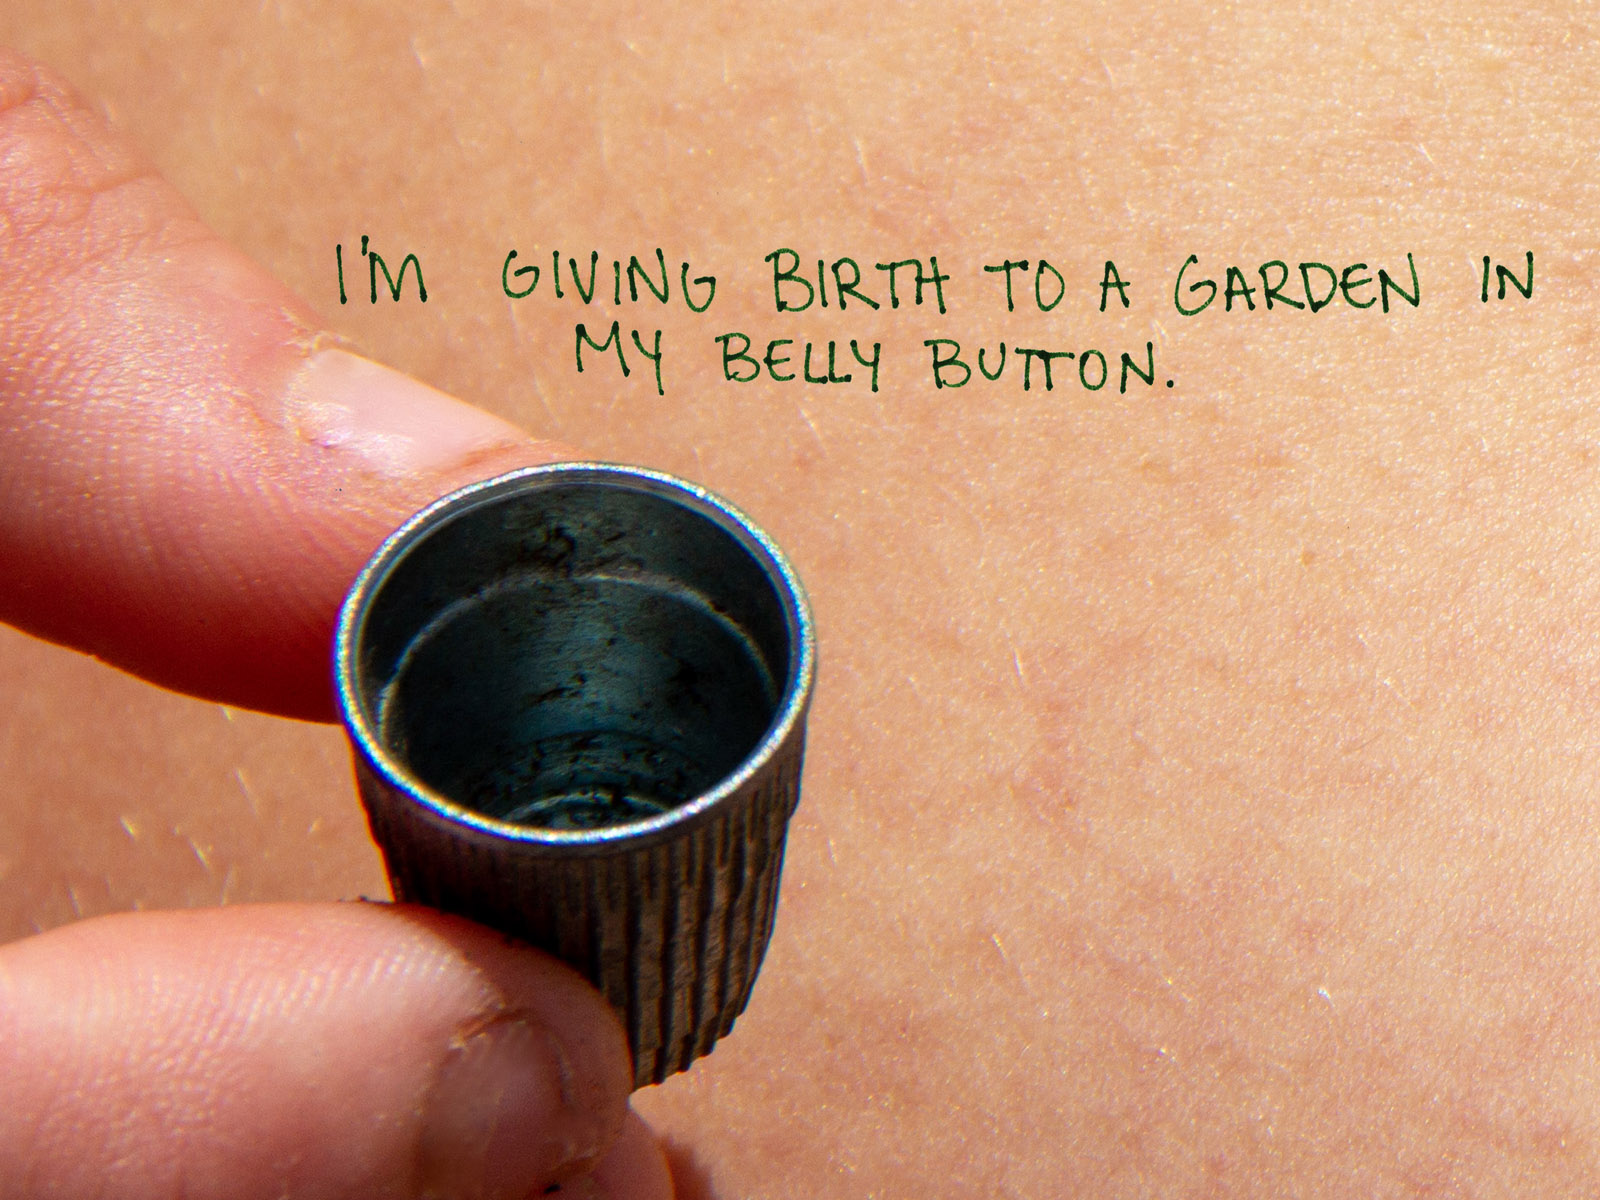 I'M GIVING BIRTH TO A GARDEN IN
MY BELLY BUTTON.